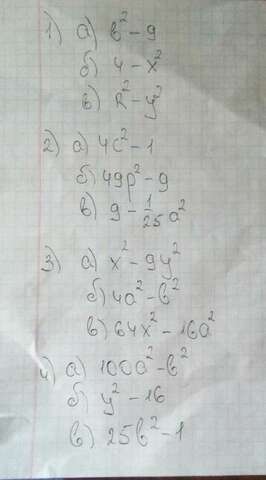 1) а) в² - 9
б) 4 - x²
в) R² - y²
2) а) 4c² - 1
б) 49p² - 9
в) 9 - 1/25 a²
3) а) x² - 9y²
б) 4a² - в²
в) 64x² - 16a²
4) а) 100a² - в²
б) y² - 16
в) 25в² - 1